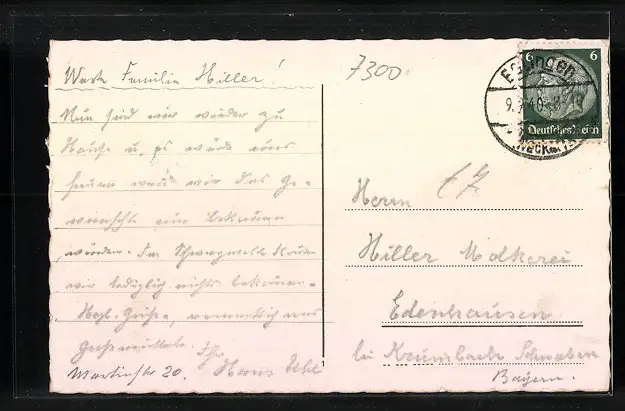 Werte Familie Hiller!
Nun sind wir wieder zu
Hause u. es würde uns
freuen wenn wir das Ge-
wünschte nun bekommen
würden. Im Schwarzwald
wir lediglich nichts bekommen.
Grüße,
Großmutter. Ihr
Martinstr 20. Hans
7300
Esslingen
9. 40.-8
Neckar
6 6
Deutsches Reich
Herrn
Hiller Molkerei
Edenhausen
bei Krumbach Schwaben
Bayern.